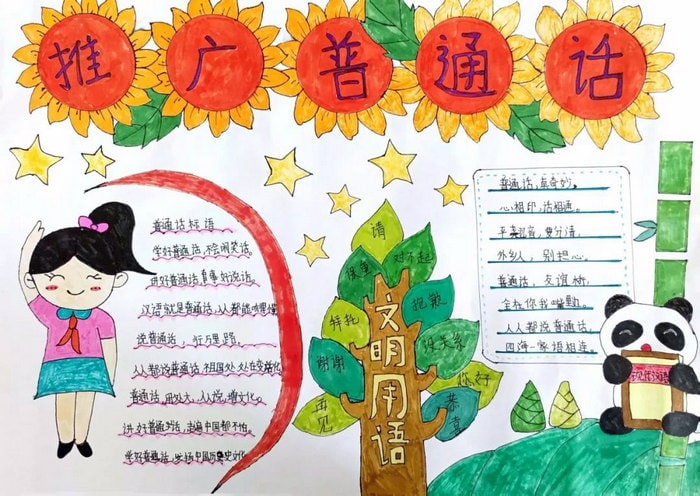 推广普通话
普通话标语
学好普通话,不会闹笑话。
讲好普通话,有事好说话。
汉语就是普通话,人人都能
说普通话,行万里路。
人人都说普通话,祖国处处在变化
普通话,用处大,人人说,增文化。
讲好普通话,走遍中国都不怕。
学好普通话,中国历史文化
请
对不起
抱歉
没关系
你好
恭喜
拜托
谢谢
再见
文明用语
普通话,真奇妙。
心相印,话相通。
平卷舌音,要分清,
外乡人,别担心。
普通话,友谊桥,
全杯你我
人人都说普通话,
四海一家语相连。